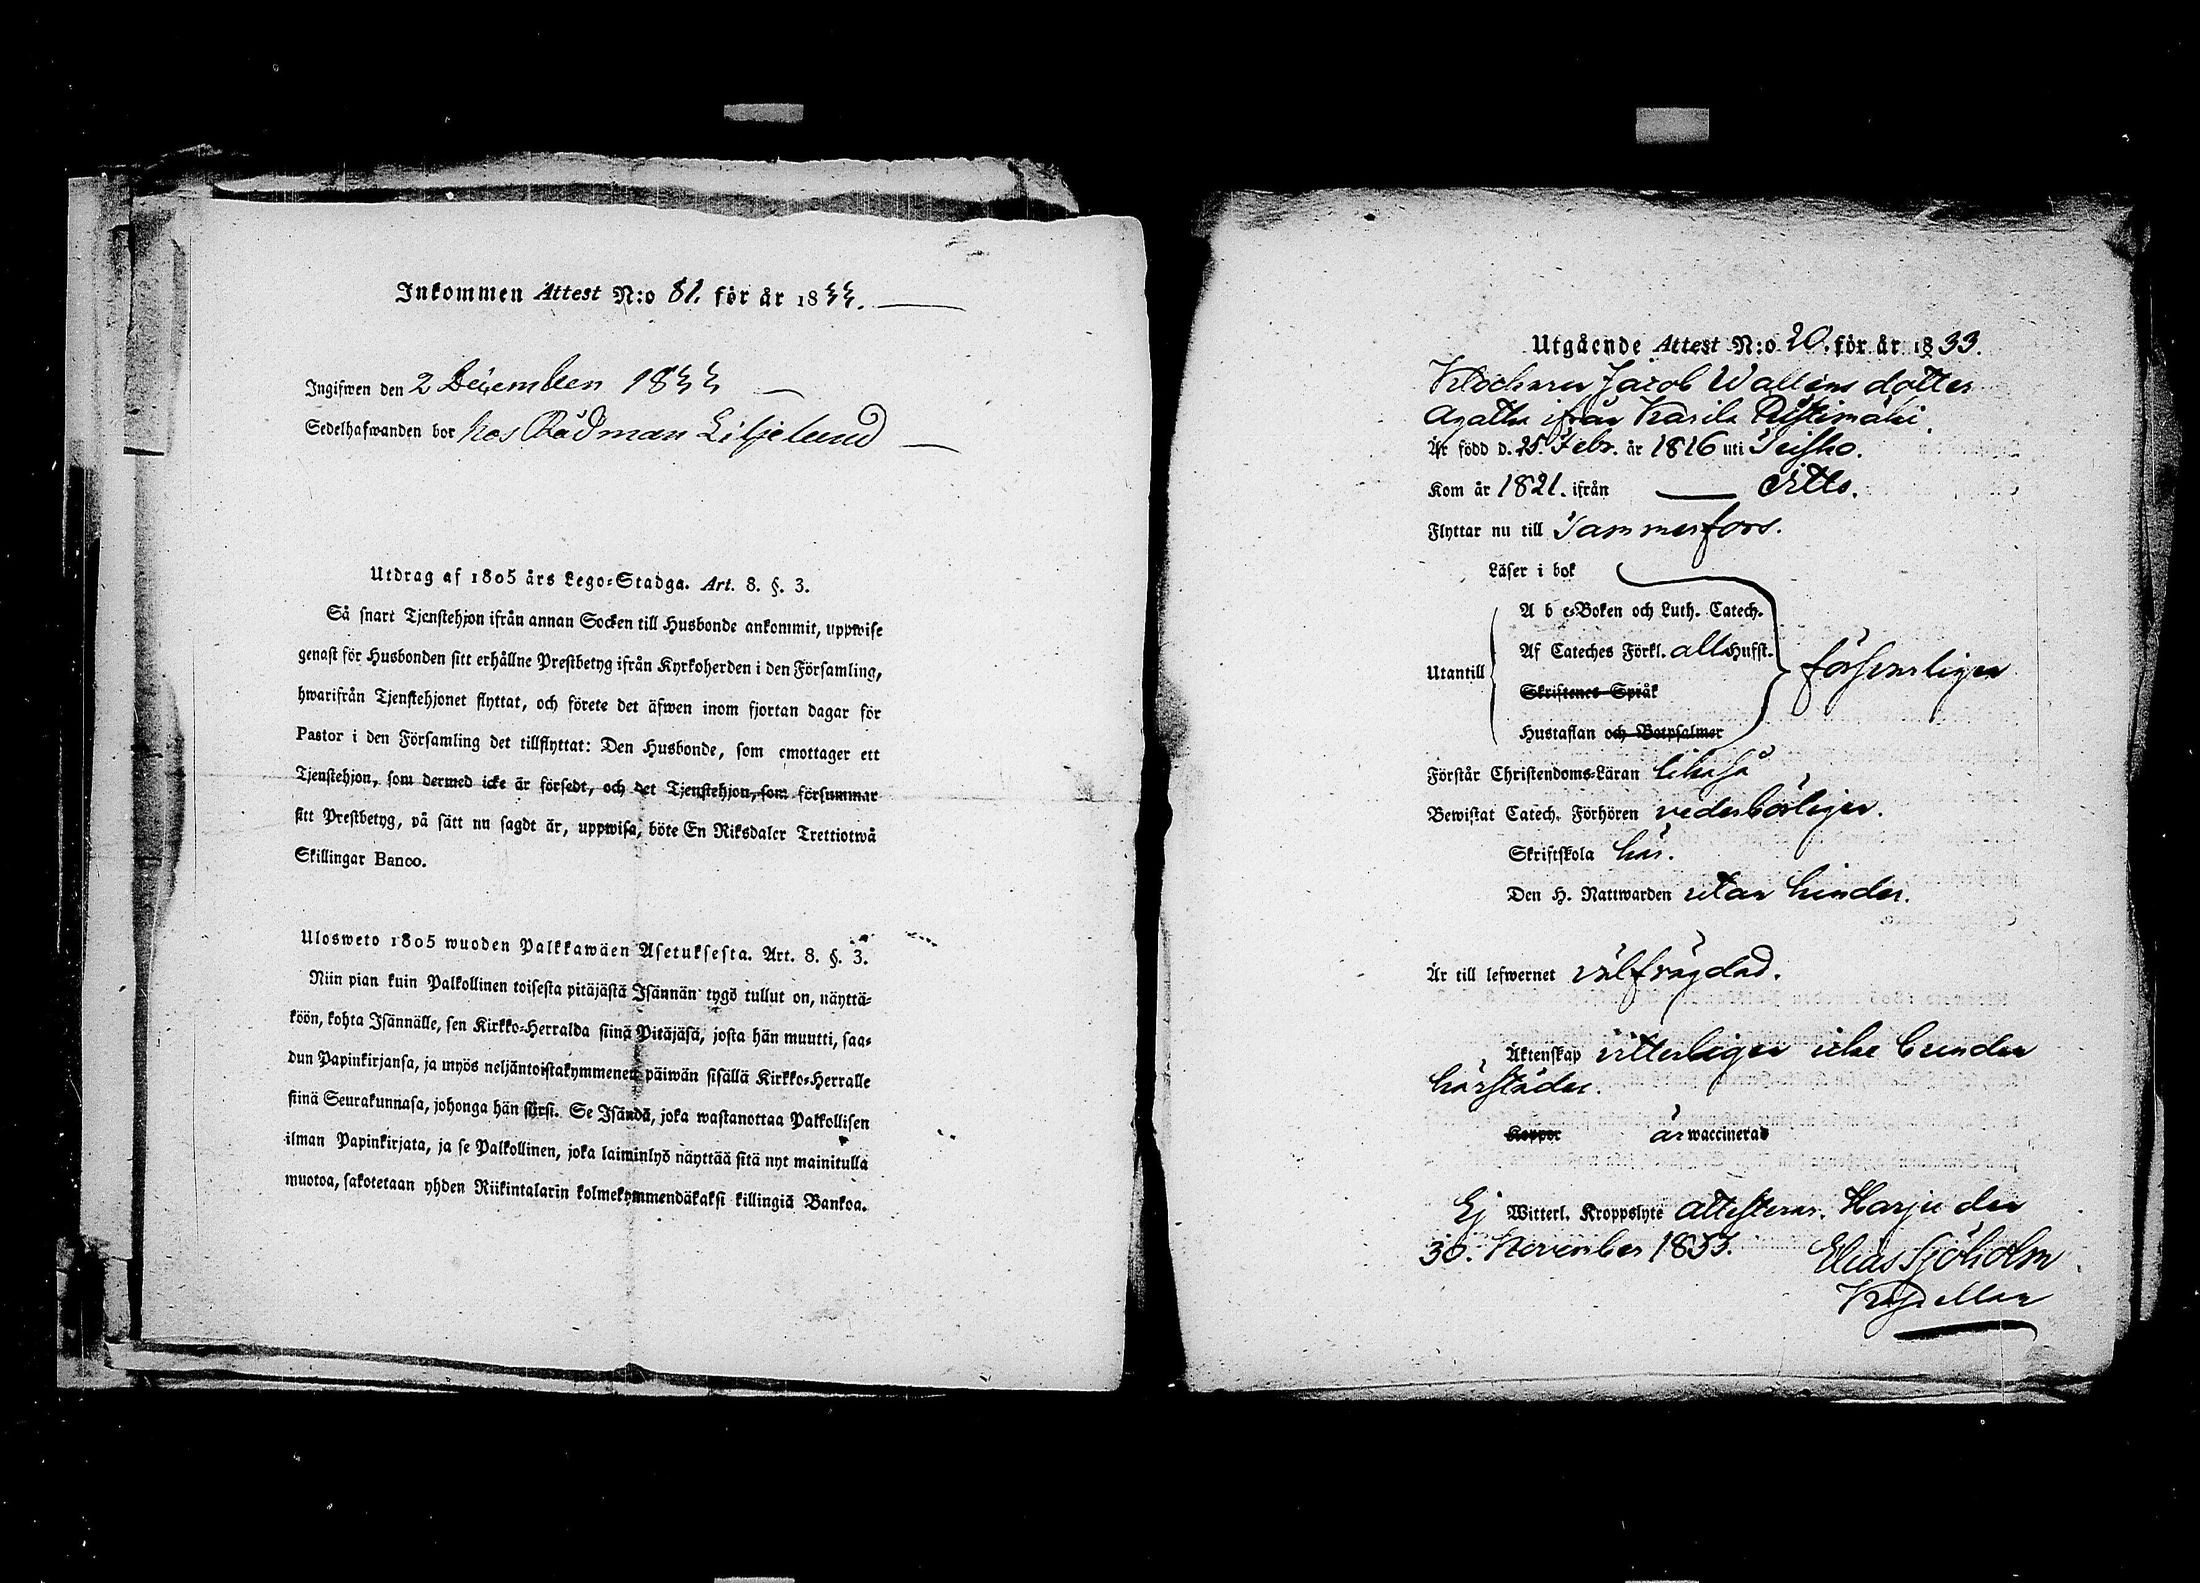 Inkommen Attest N:o 81. för år 1833.
Ingifwen den 2 December 1833
Sedelhafwanden bor hos Rådman Liljelund
Utdrag af 1805 års Lego-Stadga. Art. 8. §. 3.
Så snart Tjenstehjon ifrån annan Socken till Husbonde ankommit, uppwise
genast för Husbonden sitt erhållne Prestbetyg ifrån Kyrkoherden i den Församling,
hwarifrån Tjenstehjonet flyttat, och förete det äfwen inom fjortan dagar för
Pastor i den Församling det tillflyttat: Den Husbonde, som emottager ett
Tjenstehjon, som dermed icke är försedt, och det Tjenstehjon, som försummar
sitt Prestbetyg, på sätt nu sagdt är, uppwisa, böte En Riksdaler Trettiotwå
Skillingar Banco.
Ulosweto 1805 wuoden Palkkawäen Asetuksesta. Art. 8. §. 3.
Niin pian kuin Palkollinen toisesta pitäjästä Isännän tygö tullut on, näyttä-
köön, kohta Isännälle, sen Kirkko-Herralda siinä Pitäjäsä, josta hän muutti, saa-
dun Papinkirjansa, ja myös neljäntoistakymmenen päiwän sisällä Kirkko-Herralle
siinä Seurakunnasa, johonga hän siirsi. Se Isändä, joka wastanottaa Palkollisen
ilman Papinkirjata, ja se Palkollinen, joka laiminlyö näyttää sitä nyt mainitulla
muotoa, sakotetaan yhden Riikintalarin kolmekymmendäkaksi killingiä Bankoa.
Utgående Attest N:o 20. för år 1833.
Klockaren Jacob Walléns dotter
Agatha ifrån Karila Ristimäki.
Är född d. 25. Febr. år 1816 uti Teisko.
Kom år 1821. ifrån Ditto.
Flyttar nu till Tammerfors.
Läser i bok
A b c-Boken och Luth. Catech.
Af Cateches Förkl. allt Hufst.
Utantill försvarligen
Skriftenes Språk
Hustaflan och Botpsalmer
Förstår Christendoms-Läran likaså
Bewistat Catech. Förhören vederbörligen.
Skriftskola här.
Den H. Nattwarden utan hinder.
Är till lefwernet välfrägdad.
Äktenskap vitterligen icke bunden
härstädes.
Koppor är waccinerad
Ej Witterl. Kroppslyte attesterar. Harju den
30. November 1833. Elias Sjöholm
Kapellan